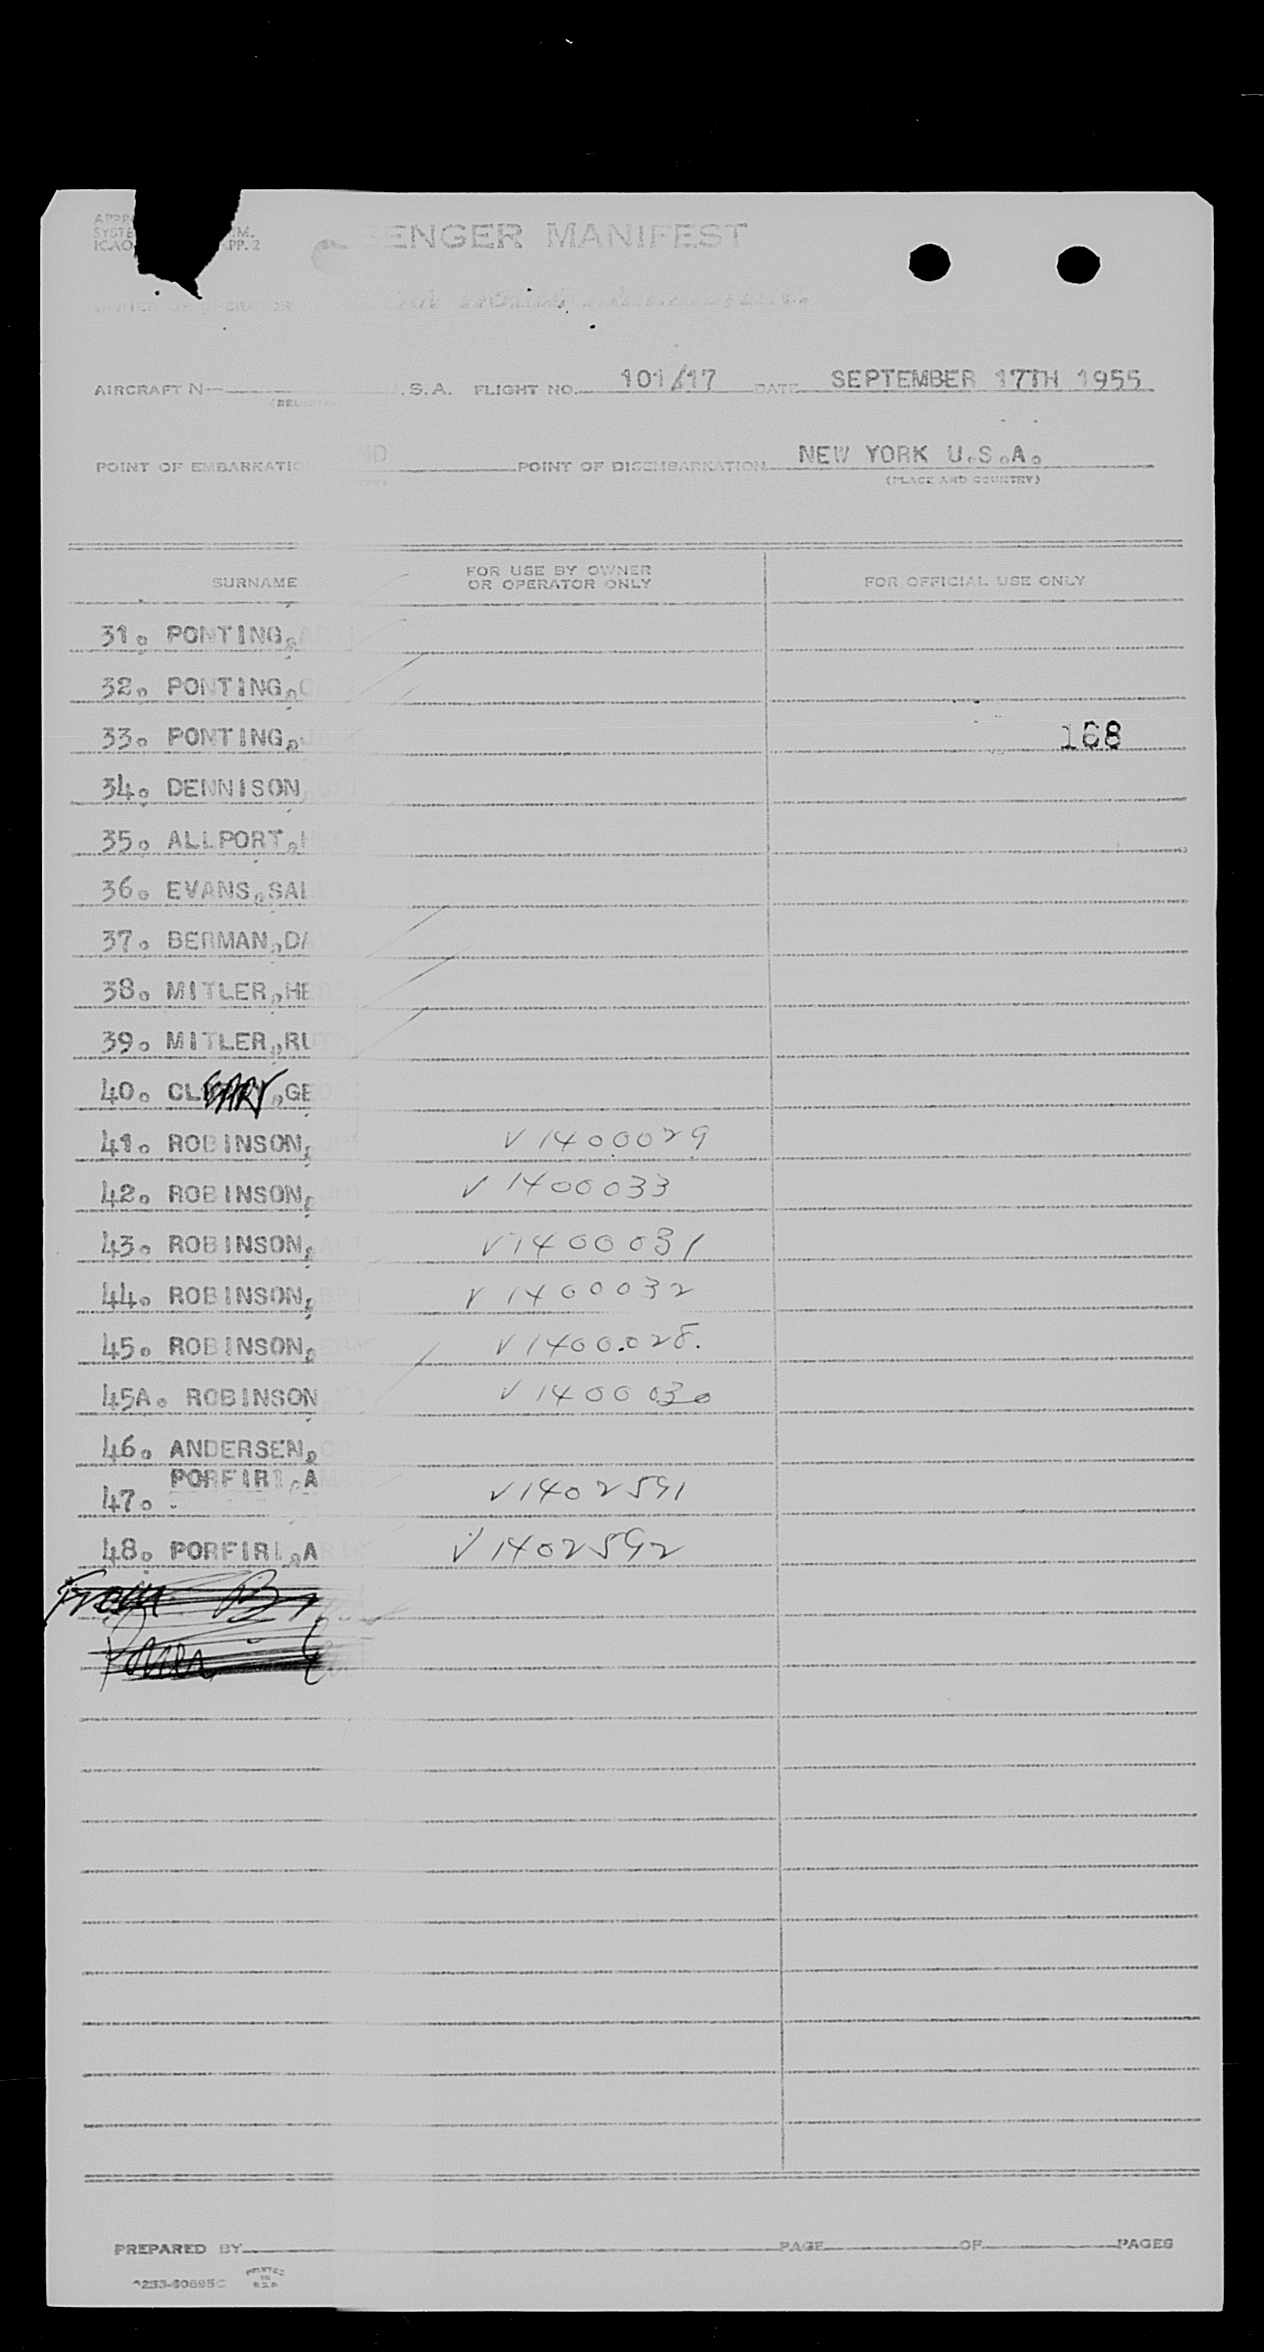 ENGER MANIFEST
AIRCRAFT N— .S.A. FLIGHT NO. 101/17 DATE SEPTEMBER 17TH 1955
POINT OF EMBARKATIO ND POINT OF DISEMBARKATION NEW YORK U.S.A.
(PLACE AND COUNTRY)
SURNAME FOR USE BY OWNER OR OPERATOR ONLY FOR OFFICIAL USE ONLY
31. PONTING,
32. PONTING,
33. PONTING, 168
34. DENNISON,
35. ALLPORT,
36. EVANS,SAL
37. BERMAN,DA
38. MITLER,HE
39. MITLER,RU
40. CLEARY,GE
41. ROBINSON, V1400029
42. ROBINSON, V1400033
43. ROBINSON, V1400031
44. ROBINSON, V1400032
45. ROBINSON, V1400028.
45A. ROBINSON V1400030
46. ANDERSEN,
PORFIRI,A
47. V1402591
48. PORFIRI,A V1402592
From
PREPARED BY PAGE OF PAGES